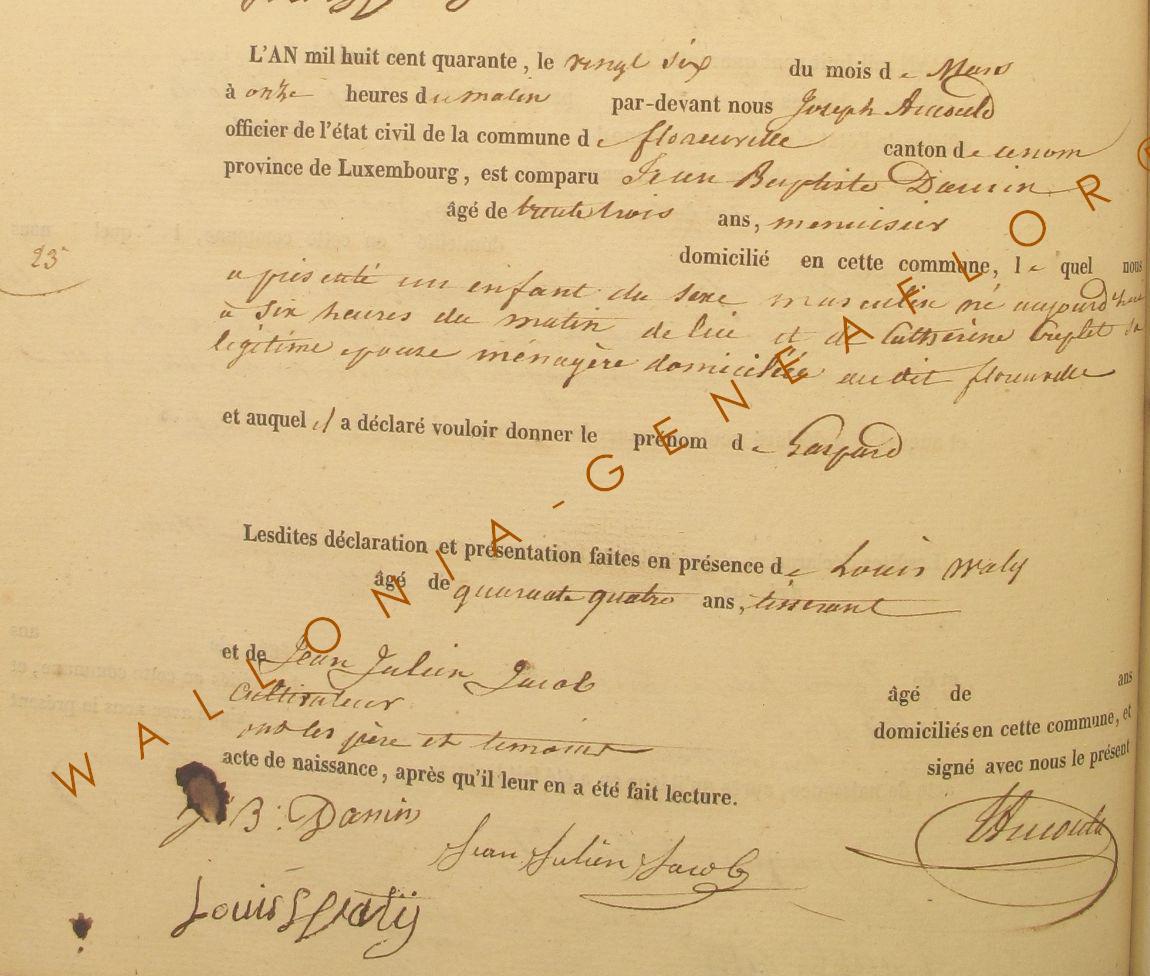 L'AN mil huit cent quarante, le vingt six du mois de Mars
à onze heures du matin par-devant nous Joseph
officier de l'état civil de la commune de florenville canton de ce nom
province de Luxembourg, est comparu Jean Baptiste Damin
âgé de trente trois ans, menuisier
domicilié en cette commune, le quel nous
23
a présenté un enfant du sexe masculin né aujourd'hui
à Six heures du matin de lui et de Catherine sa
légitime epouse ménagère domiciliée audit florenville
et auquel il a déclaré vouloir donner le prénom de Gaspard
Lesdites déclaration et présentation faites en présence de Louis Waly
âgé de quarante quatre ans, tisserant
et de Jean Julien Jacob âgé de ans
Cultivateur domiciliés en cette commune, et
ont les père et temoins signé avec nous le présent
acte de naissance, après qu'il leur en a été fait lecture.
J: B: Damin
Jean Julien Jacob
Louis Waly
WALLONIA-GENEAFLORE